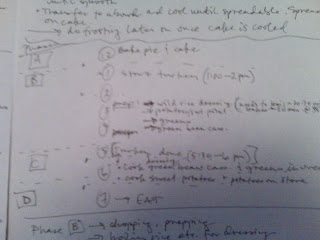 until smooth
• Transfer to a bowl and cool until spreadable. Spread
on cake.
→ do frosting later on once cake is cooled
Phase
A
⓪ Bake pie & cake
B
① Start turkey (1:00-2pm)
2
3 prep: → wild rice dressing
→ potatoes/sweet potat.
→ greens
4 → green bean case.
C
5 [turkey done (5:30-6pm)]
6 • cook green bean case. &
• cook sweet potatoes + potatoes on stove
D
7 → EAT
Phase B → chopping, prepping
→ rice etc. for dressing